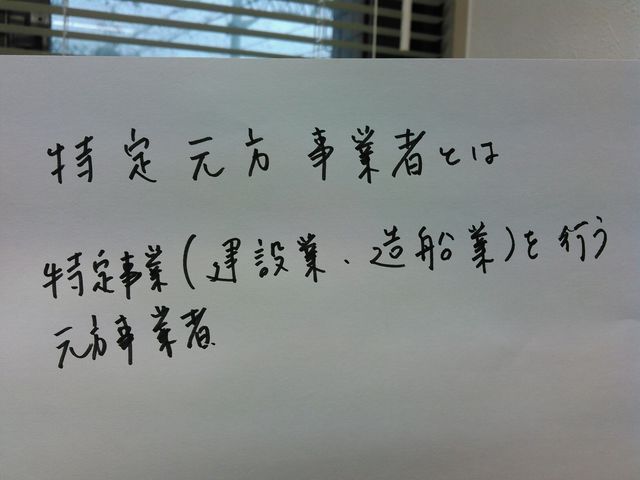 特定元方事業者とは
特定事業(建設業、造船業)を行う
元方事業者